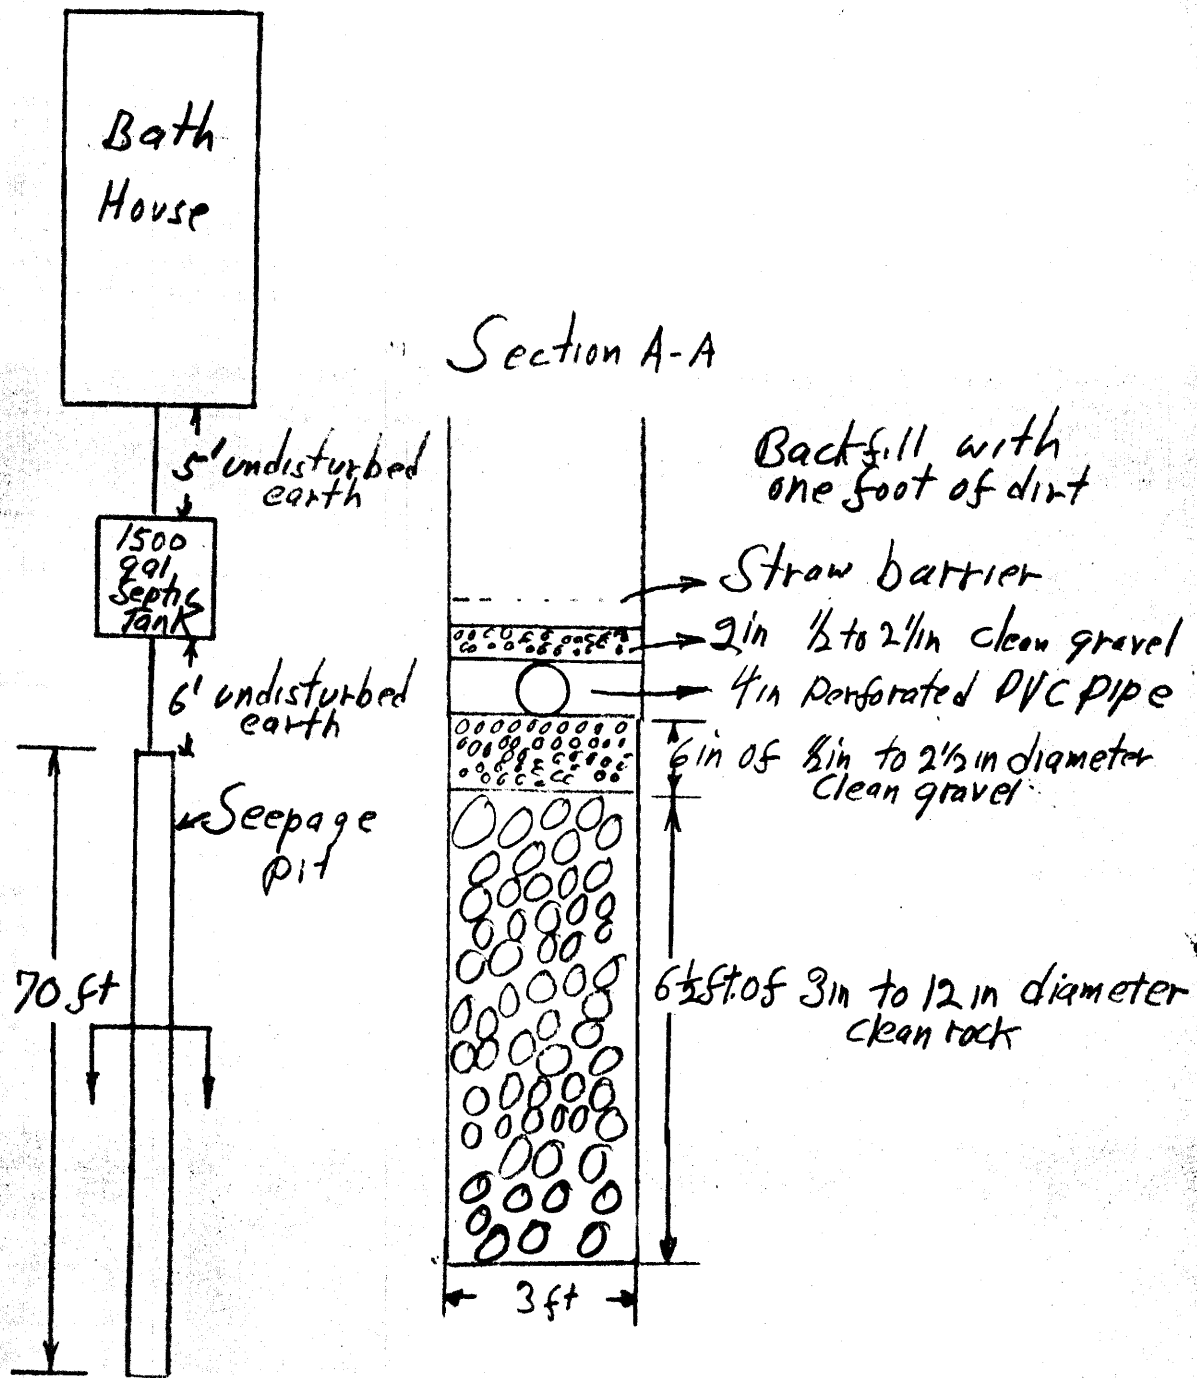 Bath
House
5' undisturbed
earth
1500
gal.
Septic
Tank
6' undisturbed
earth
Seepage
pit
70 ft
Section A-A
Backfill with
one foot of dirt
Straw barrier
2in ½ to 2½in clean gravel
4in Perforated PVC pipe
6in of ½in to 2½in diameter
Clean gravel
6½ft. of 3in to 12in diameter
clean rock
3ft